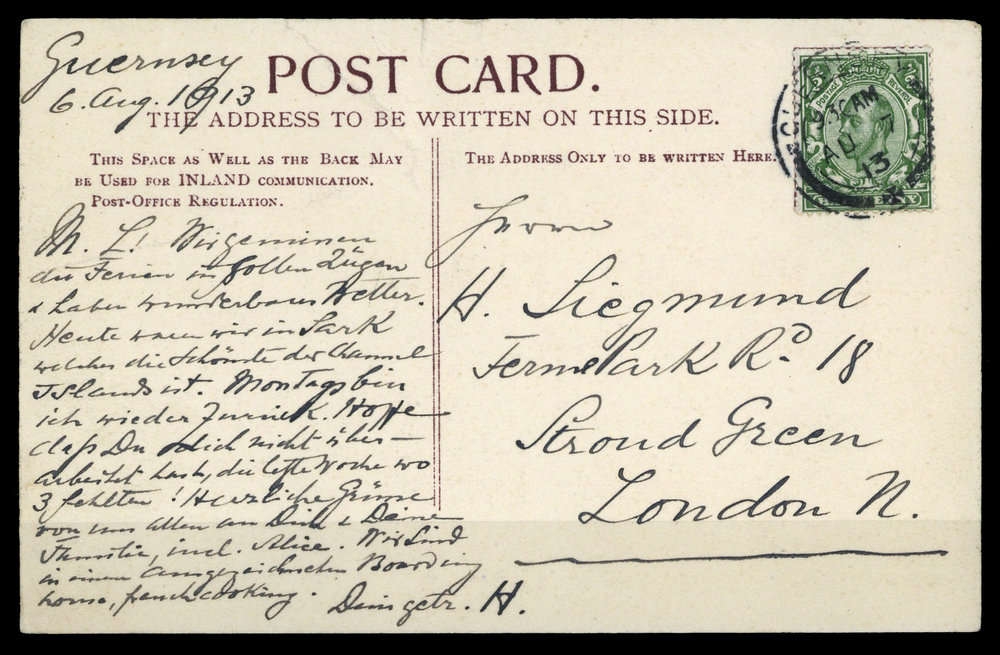 Guernsey
6. Aug. 1913
POST CARD.
THE ADDRESS TO BE WRITTEN ON THIS SIDE.
THIS SPACE AS WELL AS THE BACK MAY
BE USED FOR INLAND COMMUNICATION.
POST-OFFICE REGULATION.
M. L! Wir geniessen
die Ferien in vollen Zügen
& haben wunderbares Wetter.
Heute waren wir in Sark
welches die schönste der Channel
Islands ist. Montags bin
ich wieder zurück. Hoffe
daß Du dich nicht über-
arbeitet hast, die letzte Woche wo
3 fehlten! Herzliche Grüsse
von uns allen an Dich & Deine
Familie, incl. Alice. Wir sind
in einem ausgezeichneten Boarding
house, french cooking. Dein getr. H.
THE ADDRESS ONLY TO BE WRITTEN HERE.
Herrn
H. Siegmund
Ferme Park Rd 18
Stroud Green
London N.
POSTAGE REVENUE
AU 7
13